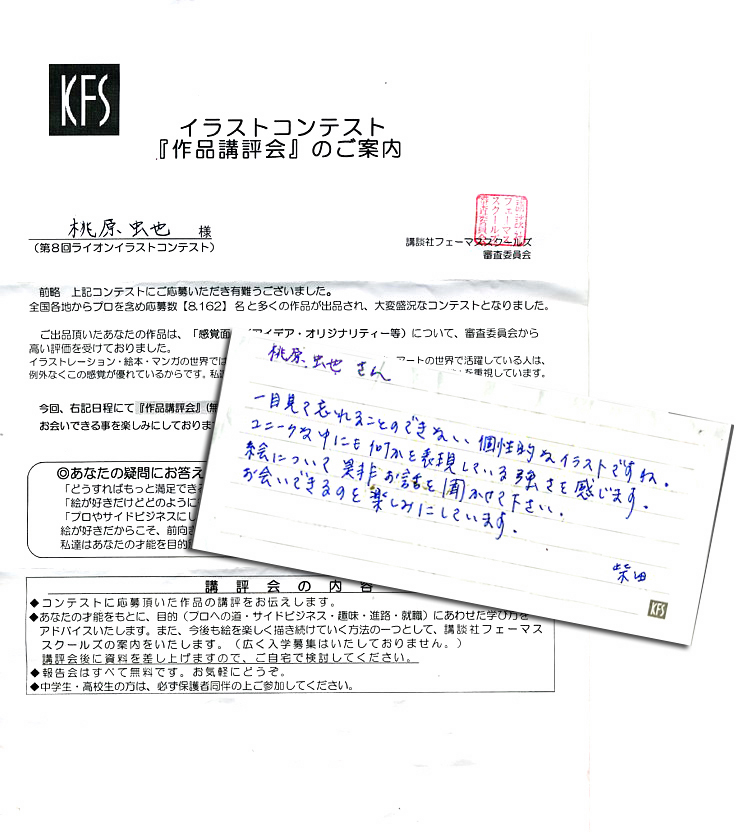 KFS
イラストコンテスト
『作品講評会』のご案内
桃原虫也 様
(第8回ライオンイラストコンテスト)
講談社フェーマススクールズ
審査委員会
前略 上記コンテストにご応募いただき有難うございました。
全国各地からプロを含め応募数【8.162】名と多くの作品が出品され、大変盛況なコンテストとなりました。
ご出品頂いたあなたの作品は、「感覚面 (アイデア・オリジナリティー等)について、審査委員会から
高い評価を受けておりました。
イラストレーション・絵本・マンガの世界では アートの世界で活躍している人は、
例外なくこの感覚が優れているからです。私達 を重視しています。
今回、右記日程にて『作品講評会』(無
お会いできる事を楽しみにしており
◎あなたの疑問にお答え
「どうすればもっと満足でき
「絵が好きだけどどのように
「プロやサイドビジネスにし
絵が好きだからこそ、前向き
私達はあなたの才能を目的
桃原虫也さん
一目見て忘れることのできない個性的なイラストですね。
ユニークな中にも何かを表現している強さを感じます。
絵について是非お話を聞かせて下さい。
お会いできるのを楽しみにしています。
柴田
KFS
講評会の内容
◆コンテストに応募頂いた作品の講評をお伝えします。
◆あなたの才能をもとに、目的(プロへの道・サイドビジネス・趣味・進路・就職)にあわせた学び方を
アドバイスいたします。また、今後も絵を楽しく描き続けていく方法の一つとして、講談社フェーマス
スクールズの案内をいたします。(広く入学募集はいたしておりません。)
講評会後に資料を差し上げますので、ご自宅で検討してください。
◆報告会はすべて無料です。お気軽にどうぞ。
◆中学生・高校生の方は、必ず保護者同伴の上ご参加してください。